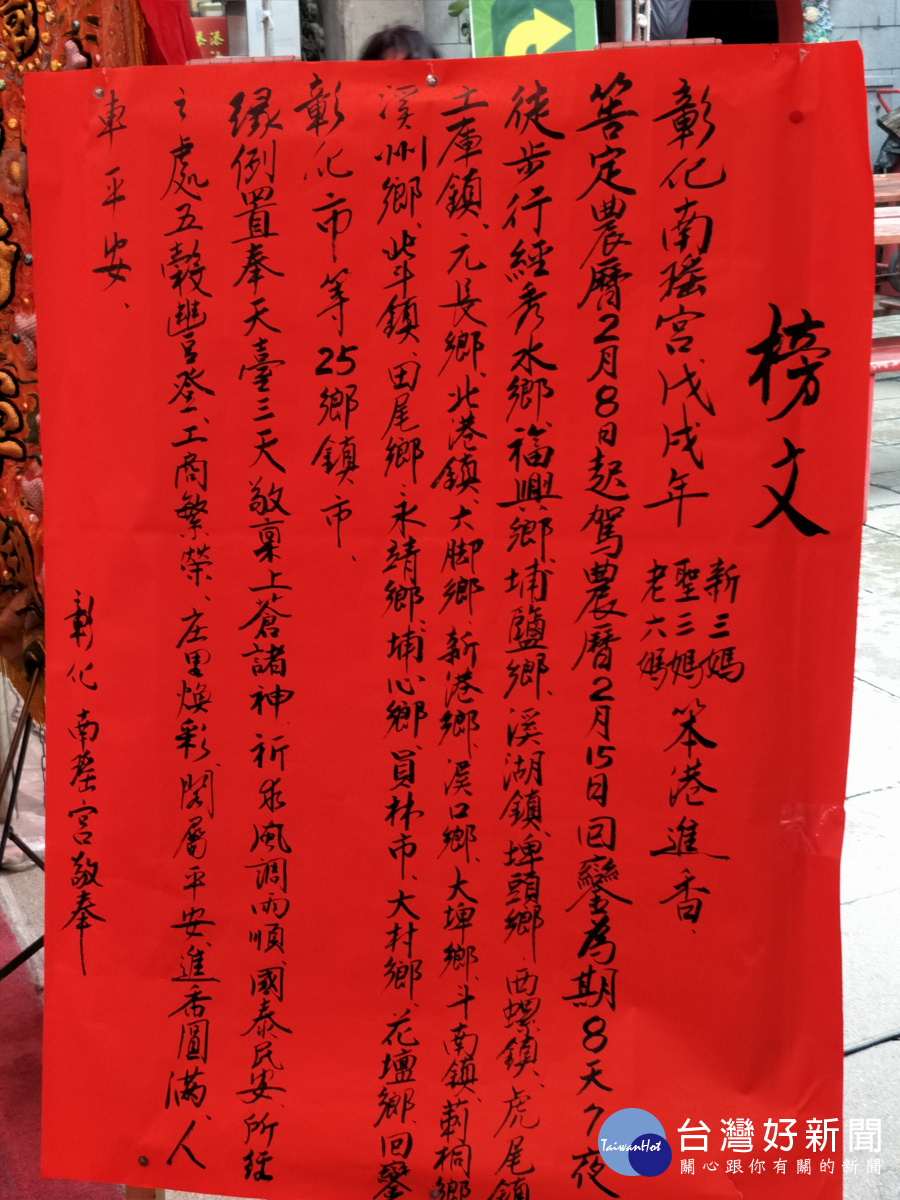 榜文
彰化南瑤宮戊戌年 新三媽 聖三媽 老六媽 笨港進香、
筶定農曆2月8日起駕農曆2月15日回鑾為期8天7夜
徒步行經秀水鄉、福興鄉、埔鹽鄉、溪湖鎮、埤頭鄉、西螺鎮、虎尾鎮
土庫鎮、元長鄉、北港鎮、六腳鄉、新港鄉、溪口鄉、大埤鄉、斗南鎮、莿桐鄉
溪州鄉、北斗鎮、田尾鄉、永靖鄉、埔心鄉、員林市、大村鄉、花壇鄉、回鑾
彰化市等25鄉鎮、市、
緣例置奉天臺三天敬稟上蒼諸神、祈求風調雨順、國泰民安、所經
之處五穀豐登、工商繁榮、庄里煥彩、閤屬平安、進香圓滿、人
車平安、
彰化南瑤宮敬奉
TaiwanHot
台灣好新聞
關心跟你有關的新聞